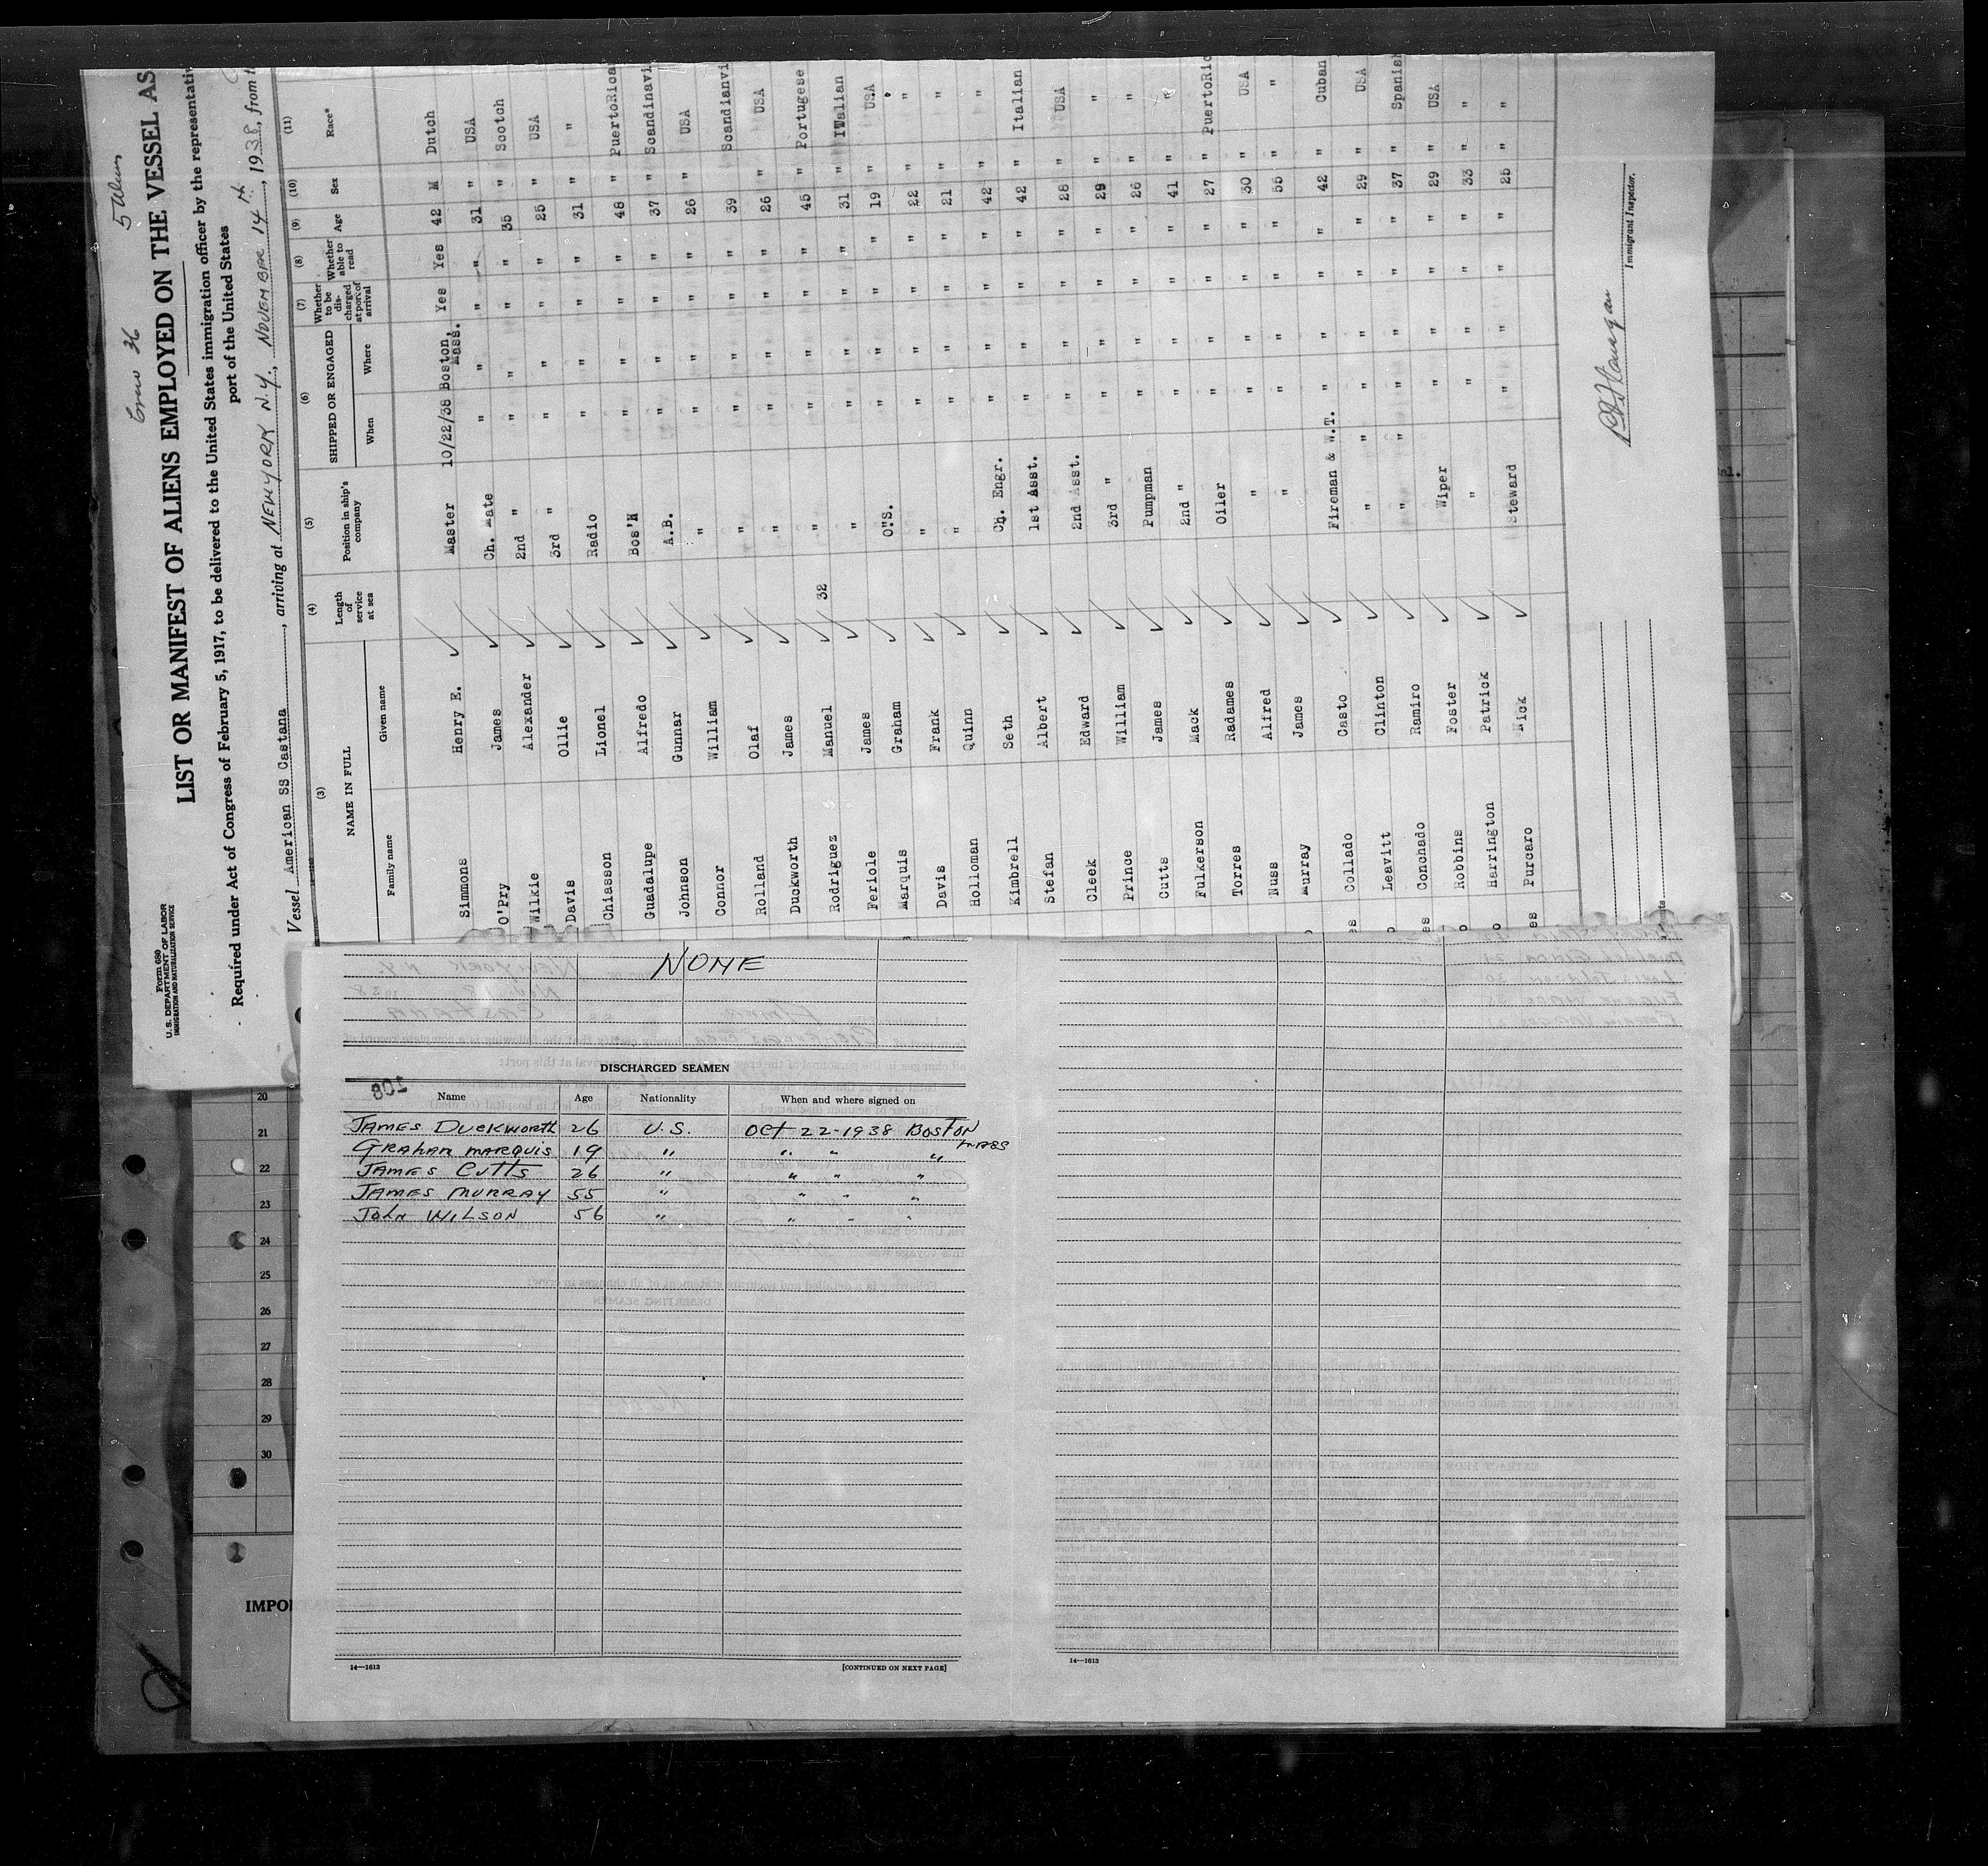 Form 680
U. S. DEPARTMENT OF LABOR
IMMIGRATION AND NATURALIZATION SERVICE
Crew 36 5 Aliens
LIST OR MANIFEST OF ALIENS EMPLOYED ON THE VESSEL AS
Required under Act of Congress of February 5, 1917, to be delivered to the United States immigration officer by the representativ
port of the United States
Vessel American SS Castana, arriving at NEW YORK N.Y., NOVEMBER 14th, 1938, from t
(3) (4) (5) (6) (7) (8) (9) (10) (11)
NAME IN FULL Length of service at sea Position in ship's company SHIPPED OR ENGAGED Whether to be discharged at port of arrival Whether able to read Age Sex Race*
Family name Given name When Where
Simmons Henry E. Master 10/22/38 Boston, Mass. Yes Yes 42 M Dutch
O'Pry James Ch. Mate " " " " 31 " USA
Wilkie Alexander 2nd " " " " " 35 " Scotch
Davis Ollie 3rd " " " " " 25 " USA
Chiasson Lionel Radio " " " " 31 " "
Guadalupe Alfredo Bos'N " " " " 48 " PuertoRica
Johnson Gunnar A.B. " " " " 37 " Scandinavi
Connor William " " " " " 26 " USA
Rolland Olaf " " " " " 39 " Scandianvi
Duckworth James " " " " " 26 " USA
Rodriguez Manuel 32 " " " " " 45 " Portugese
Feriole James " " " " " 31 " Italian
Marquis Graham O.S. " " " " 19 " USA
Davis Frank " " " " " 22 " "
Holloman Quinn " " " " " 21 " "
Kimbrell Seth Ch. Engr. " " " " 42 " "
Stefan Albert 1st Asst. " " " " 42 " Italian
Cleek Edward 2nd Asst. " " " " 28 " USA
Prince William 3rd " " " " " 29 " "
Cutts James Pumpman " " " " 26 " "
Fulkerson Mack 2nd " " " " " 41 " "
Torres Radames Oiler " " " " 27 " PuertoRic
Nuss Alfred " " " " " 30 " USA
Murray James " " " " " 55 " "
Collado Casto Fireman & W.T. " " " " 42 " Cuban
Leavitt Clinton " " " " " 29 " USA
Conchado Ramiro " " " " " 37 " Spanish
Robbins Foster Wiper " " " " 29 " USA
Harrington Patrick " " " " " 33 " "
Purcaro Nick Steward " " " " 25 " "
Immigrant Inspector.
NONE
DISCHARGED SEAMEN
108
Name Age Nationality When and where signed on
JAMES DUCKWORTH 26 U.S. OCT 22-1938 BOSTON MASS
GRAHAM MARQUIS 19 " " " "
JAMES CUTTS 26 " " " "
JAMES MURRAY 55 " " " "
JOHN WILSON 56 " " " "
14—1613 [CONTINUED ON NEXT PAGE]
14—1613
20
21
22
23
24
25
26
27
28
29
30
IMPO